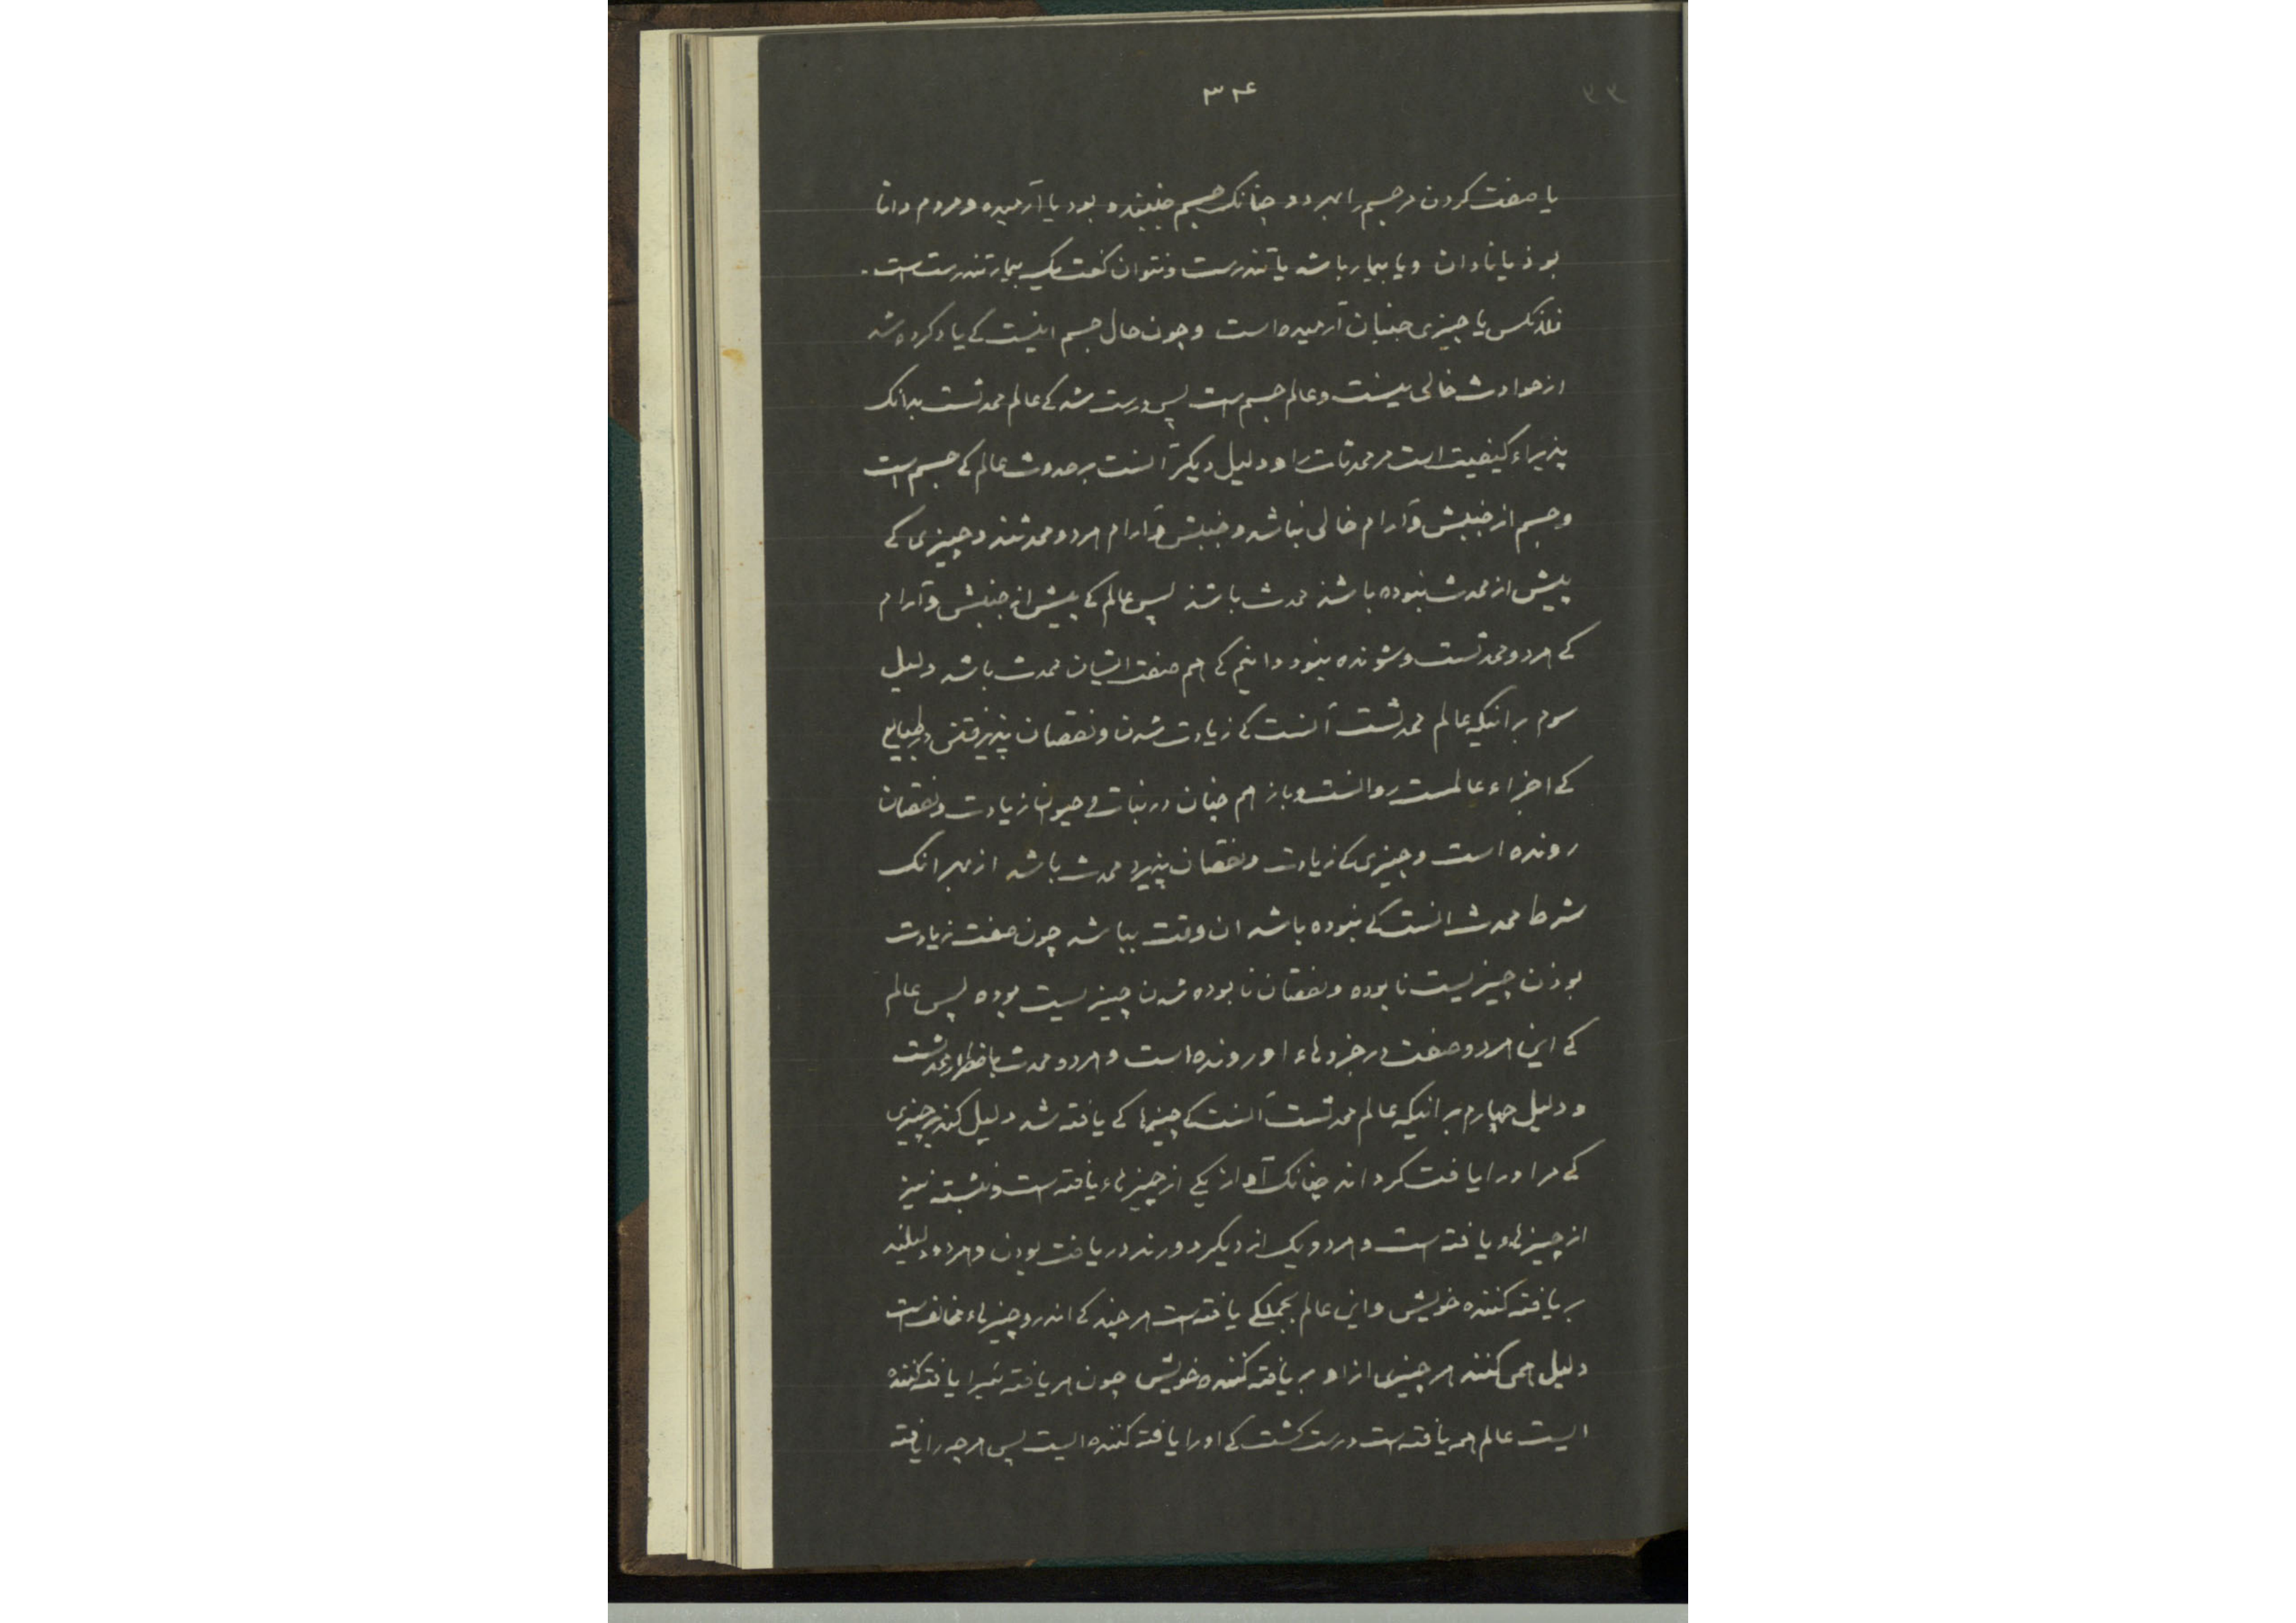 ۳۳
۳۲۴
یا صفت کردن مر جسم را بهر دو چنانک جسم جنبنده بود یا آرمیده و مردم دانا
بوذ یا نادان و یا بیمار باشد یا تندرست و نتوان کفت یک بیمار تندرست است.
فلانکس یا چیزی جنبان آرمیده است و چون حال جسم اینست کی یاد کرده شد
از حوادث خالی نیست و عالم جسم است پس درست شد کی عالم محدثست بدانک
پذیراء کیفیت است مر محدثات را و دلیل دیکر آنست بر حدوث عالم کی جسم است
و جسم از جنبش و آرام خالی نباشد و جنبش و آرام هر دو محدثند و چیزی کی
پیش از محدث نبوده باشذ محدث باشذ پس عالم کی پیش از جنبش و آرام
کی هر دو محدثست و شونده نبود دانیم کی هم صفت ایشان محدث باشد دلیل
سوم برانیکه عالم محدثست آنست کی زیادت شدن و نقصان پذیرفتن در طبایع
کی اجزاء عالمست روانست و باز هم چنان در نبات و حیوان زیادت و نقصان
رونده است و چیزی کی زیادت و نقصان پذیرد محدث باشد از بهر انک
شرط محدث انست کی نبوده باشد ان وقت بباشد چون صفت زیادت
بوذن چیزیست نا بوده و نقصان نا بوده شدن چیزیست بوده پس عالم
کی این هر دو صفت در جزوهاء او رونده است و هر دو محدث باضطرار محدثست
و دلیل چهارم برانیکه عالم محدثست آنست کی چیزها کی یافته شد دلیل کند بر چیزی
کی مر او را یافت کرد اند چنانک آواز یکی از چیزهاء یافته است و نبشته نیز
از چیزهاء یافته است و هر دو یک از دیکر دورند در یافت بودن و هر دو دلیلند
بر یافته کننده خویش و این عالم بجملکی یافته است هر چند کی اندرو چیزهاء مخالفست
دلیل همی کنند هر چیزی ازاو بر یافته کننده خویش چون هر یافته ئیرا یافته کننده
ایست عالم همه یافته است درست کشت کی او را یافته کننده ایست پس هر چه را یافته